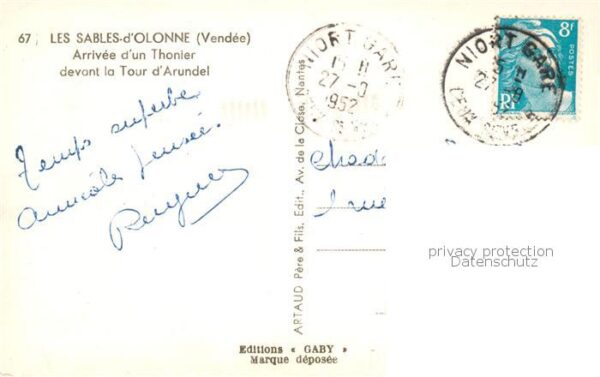 67 LES SABLES-d'OLONNE (Vendée)
Arrivée d'un Thonier
devant la Tour d'Arundel
Temps superbe
amicale pensée
ARTAUD Père & Fils, Edit., Av. de la Close, Nantes
NIORT GARE
27 - 9
1952
8F
POSTES
RF
NIORT GARE
DEUX SEVRES
privacy protection
Datenschutz
Editions « GABY »
Marque déposée